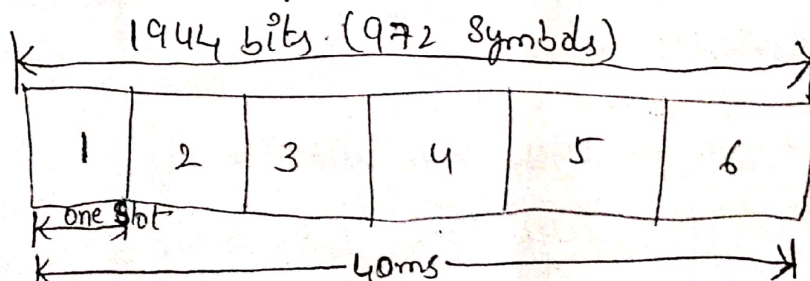 1944 bits. (972 Symbols)
1 2 3 4 5 6
one Slot
40ms